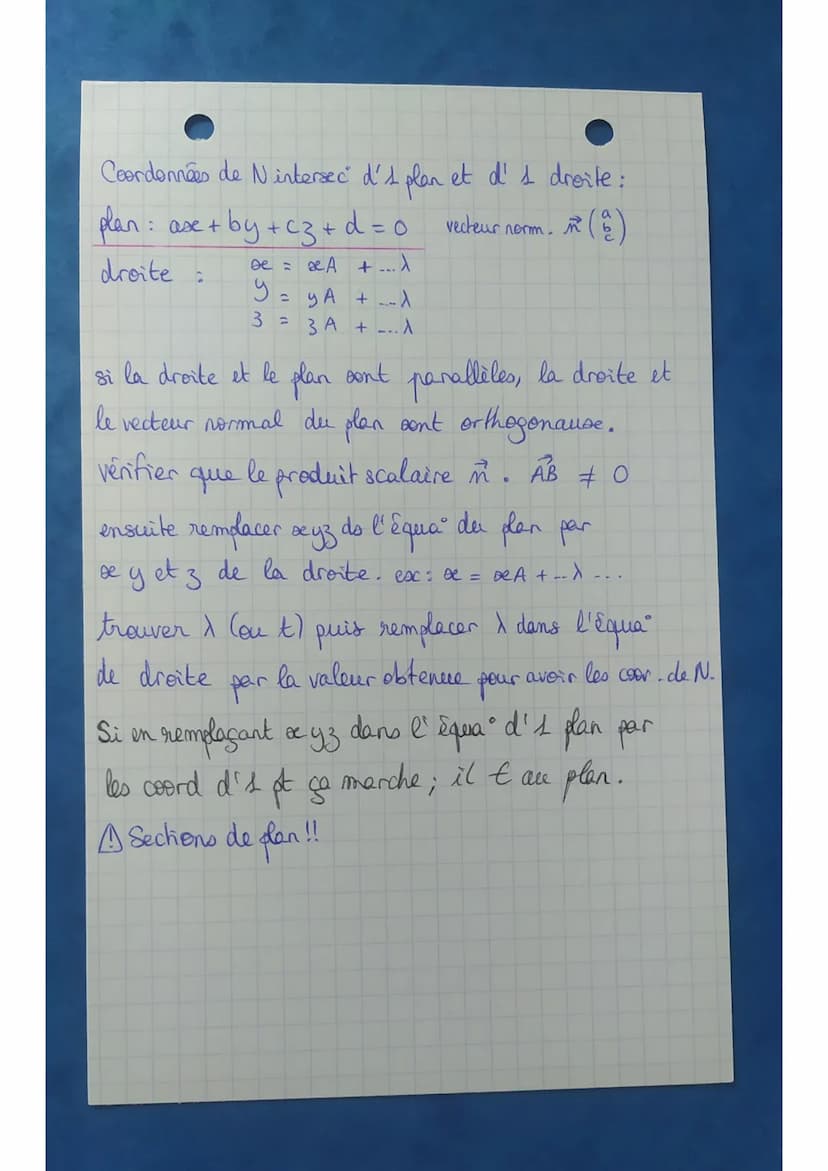 Coordonnées de N intersec° d'1 plan et d'1 droite :
plan : ax + by + cz + d = 0 vecteur norm. n⃗ (a b c)
droite : x = xA + ...λ
y = yA + ...λ
z = zA + ...λ
si la droite et le plan sont parallèles, la droite et
le vecteur normal du plan sont orthogonaux.
vérifier que le produit scalaire n⃗ . AB⃗ ≠ 0
ensuite remplacer xyz ds l'équa° du plan par
x y et z de la droite. ex : x = xA + ...λ ...
trouver λ (ou t) puis remplacer λ dans l'équa°
de droite par la valeur obtenue pour avoir les coor. de N.
Si en remplaçant xyz dans l'équa° d'1 plan par
les coord d'1 pt ça marche ; il ∈ au plan.
⚠ Sections de plan !!